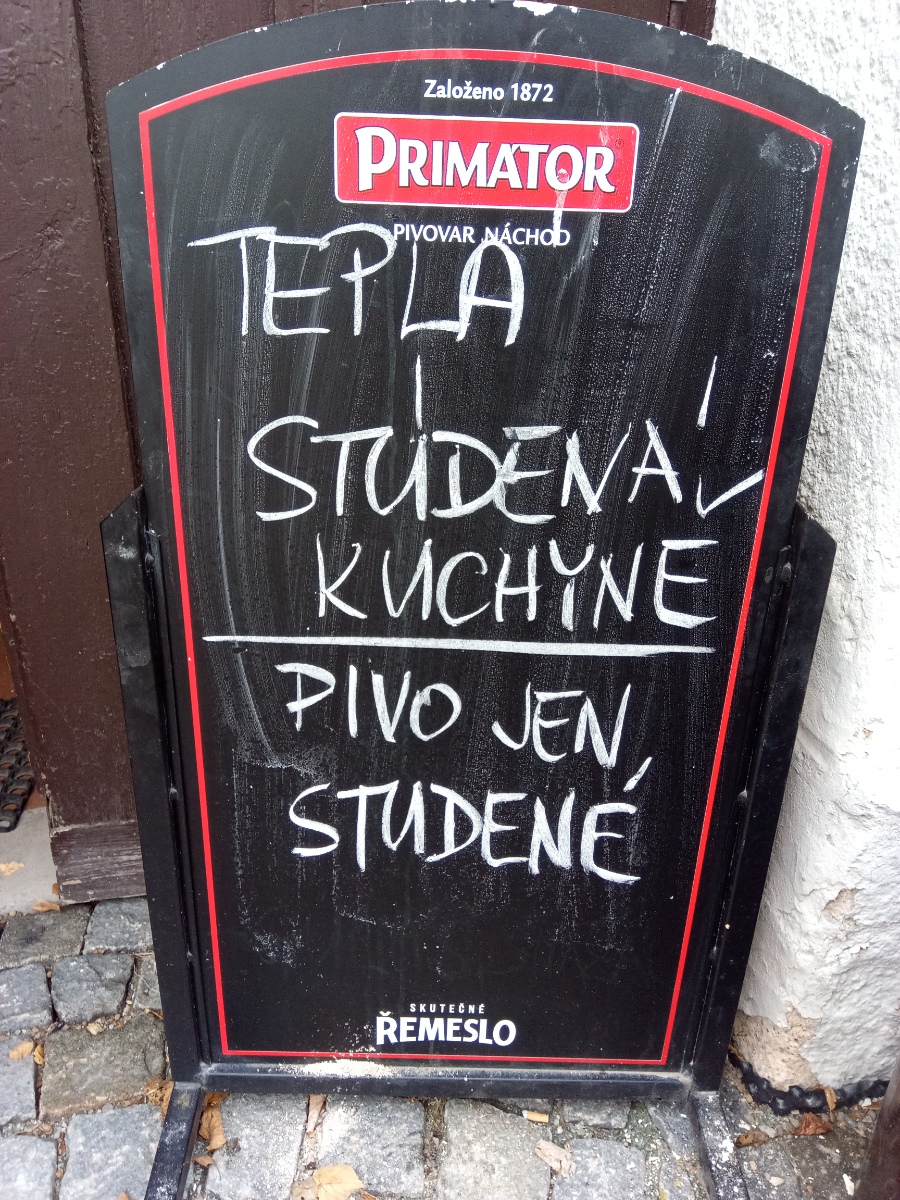 Založeno 1872
PRIMÁTOR
PIVOVAR NÁCHOD
TEPLÁ
I
STUDENÁ
KUCHYNĚ
PIVO JEN
STUDENÉ
SKUTEČNÉ
ŘEMESLO